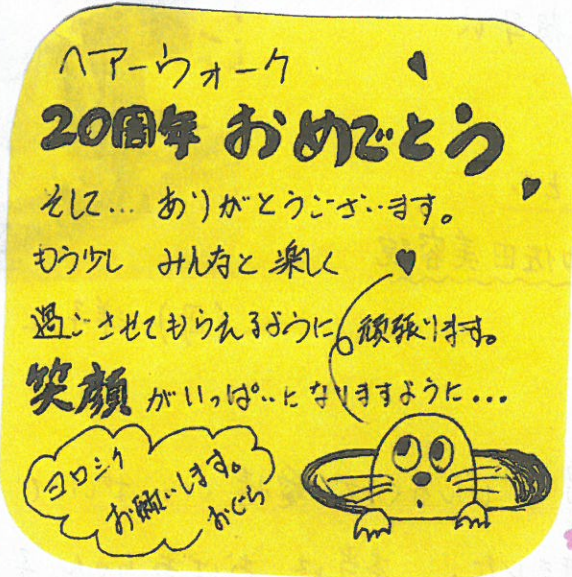 ヘアーウォーク
20周年 おめでとう
そして... ありがとうございます。
もう少し みんなと楽しく
過ごさせてもらえるように、頑張ります。
笑顔がいっぱいになりますように...
ヨロシク
お願いします。
おぐら